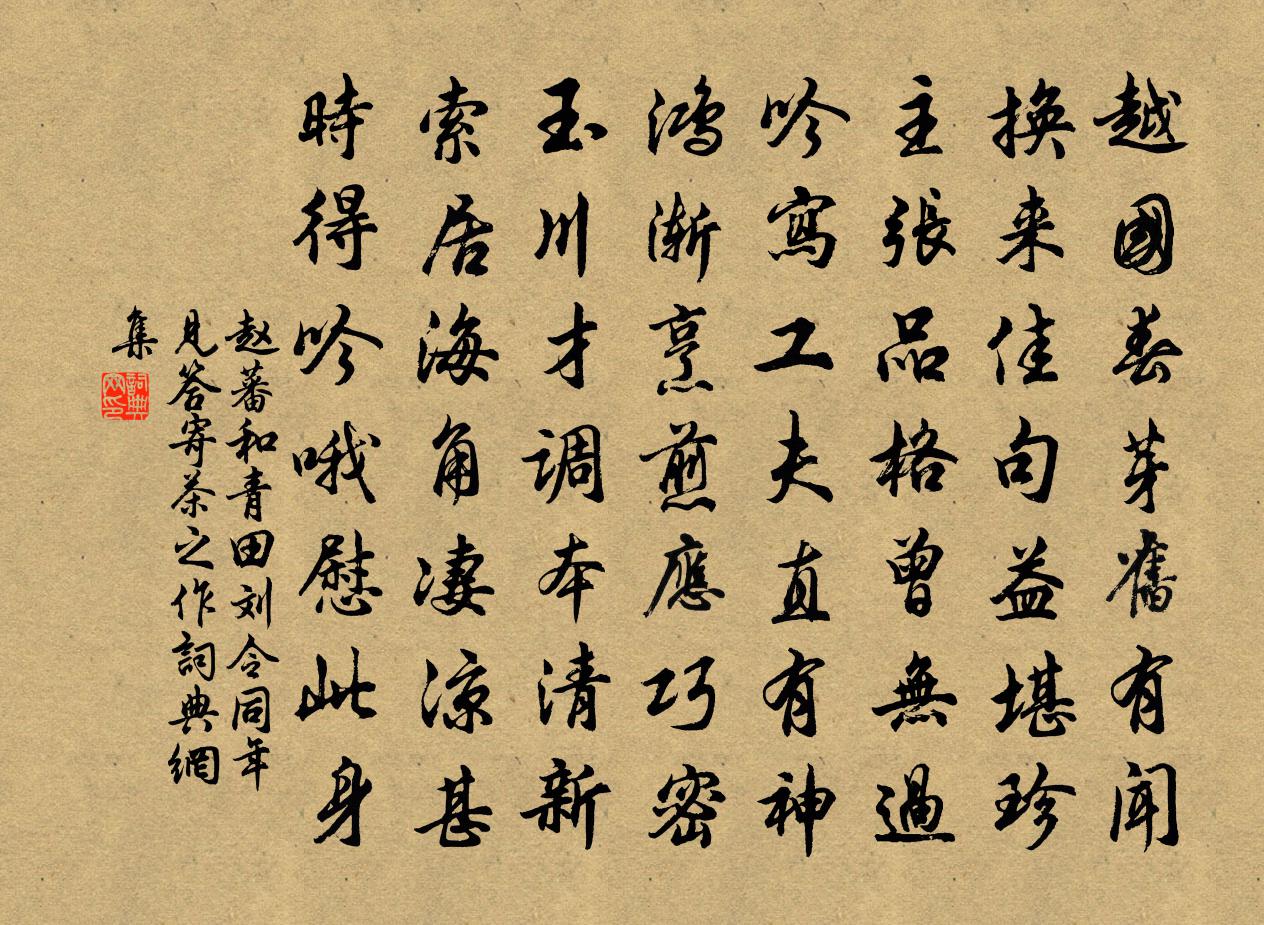 越國春芽舊有聞
換来佳句益堪珍
主張品格曾無過
吟寫工夫直有神
鴻漸烹煎應巧密
玉川才調本清新
索居海角凄凉甚
時得吟哦慰此身
赵蕃和青田刘令同年
見答寄茶之作詞典網
集
詞典
网印